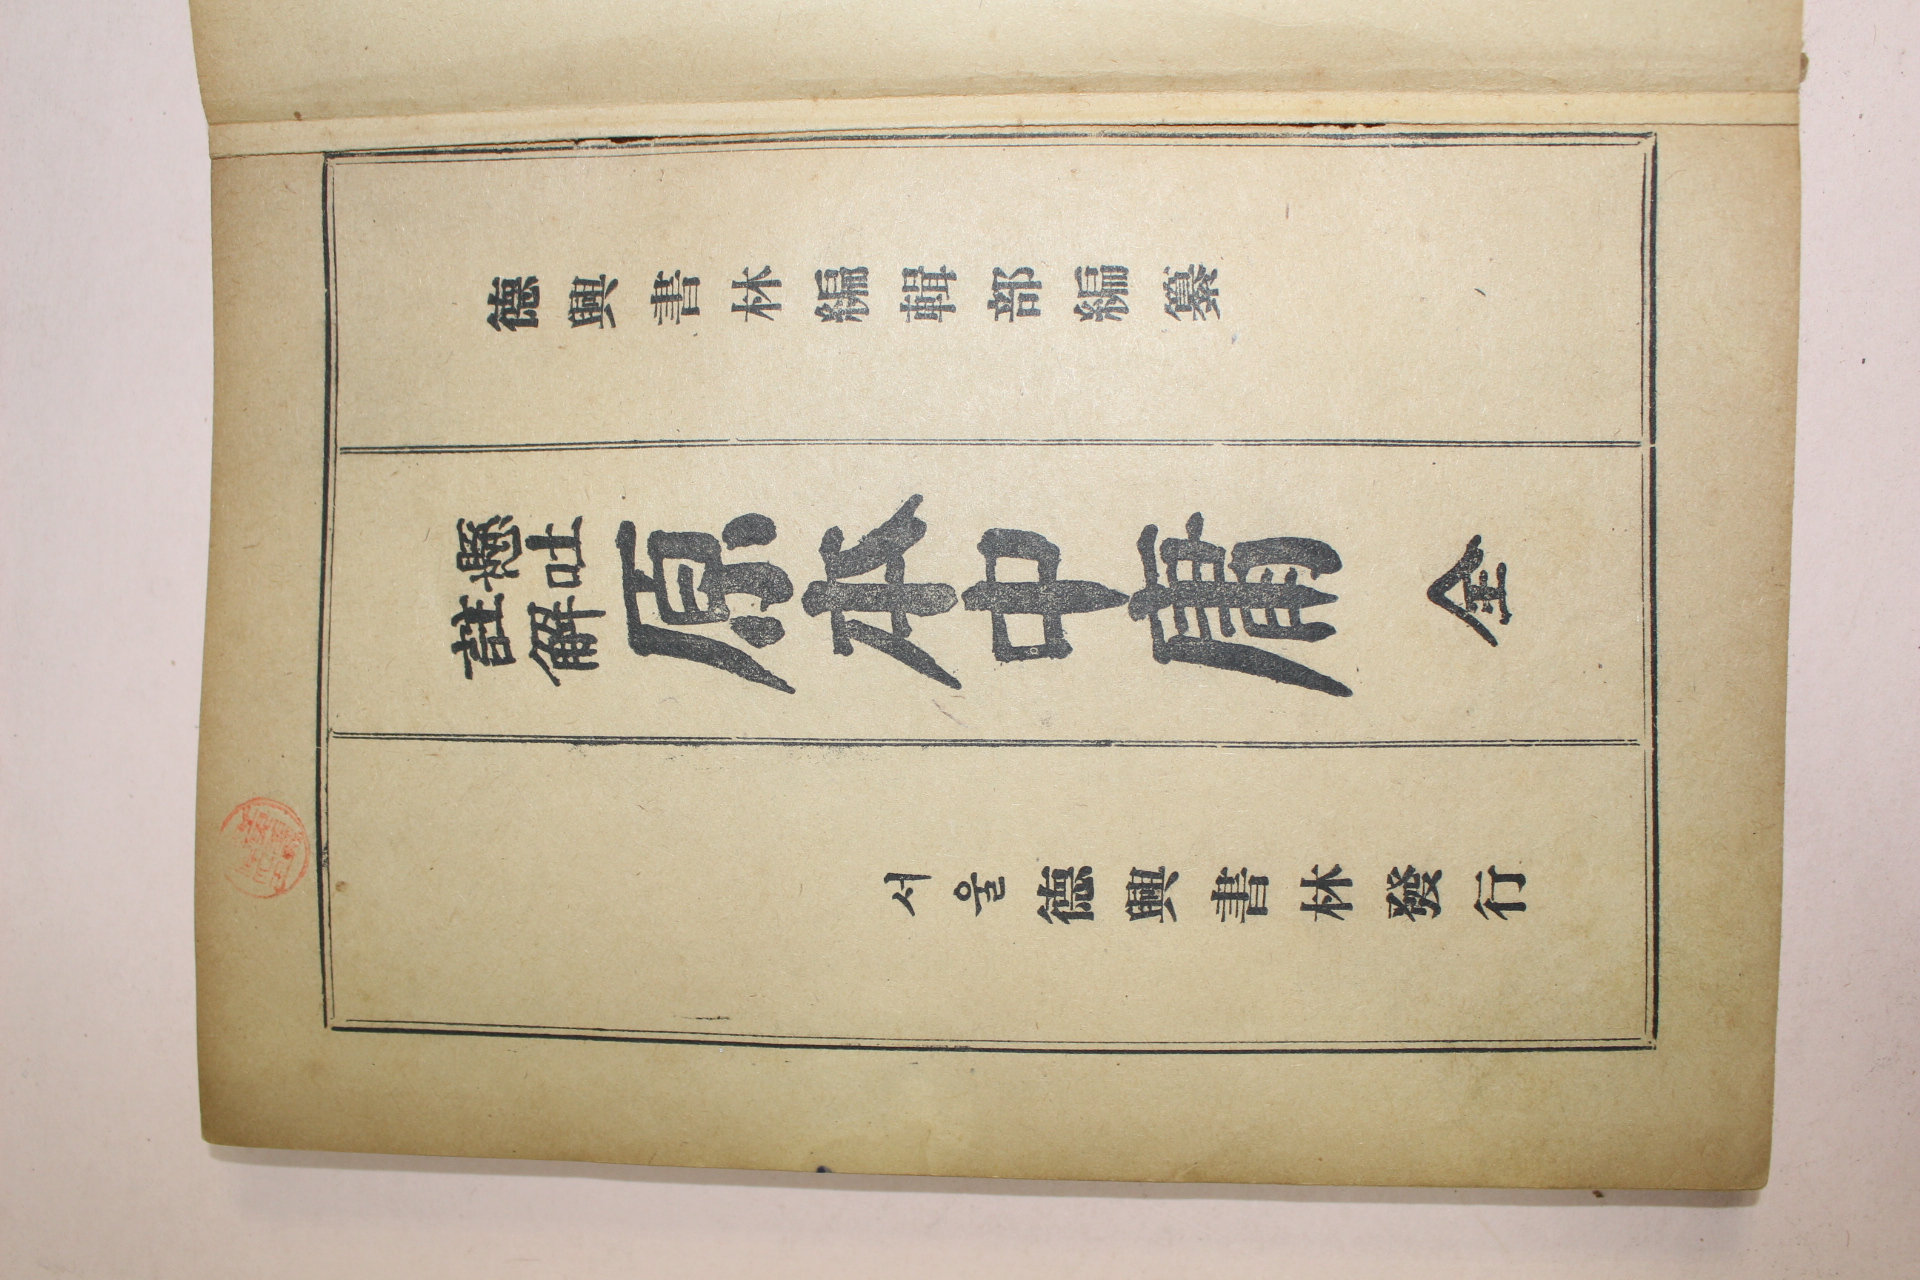 德興書林編輯部編纂
懸吐
註解
原本中庸 全
서울 德興書林發行